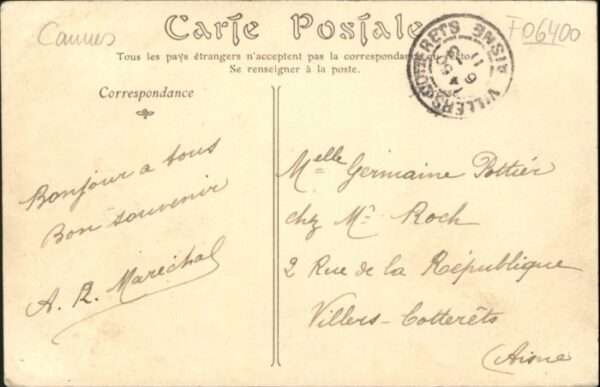 Cannes
Carte Postale
F06400
Tous les pays étrangers n'acceptent pas la correspondance au
Se renseigner à la poste.
VILLERS-COTTERETS AISNE
Correspondance
Bonjour a tous
Bon souvenir
A. R. Maréchal
Melle Germaine Pottiér
chz Mr Roch
2 Rue de la République
Villers-Cotterêts
(Aisne